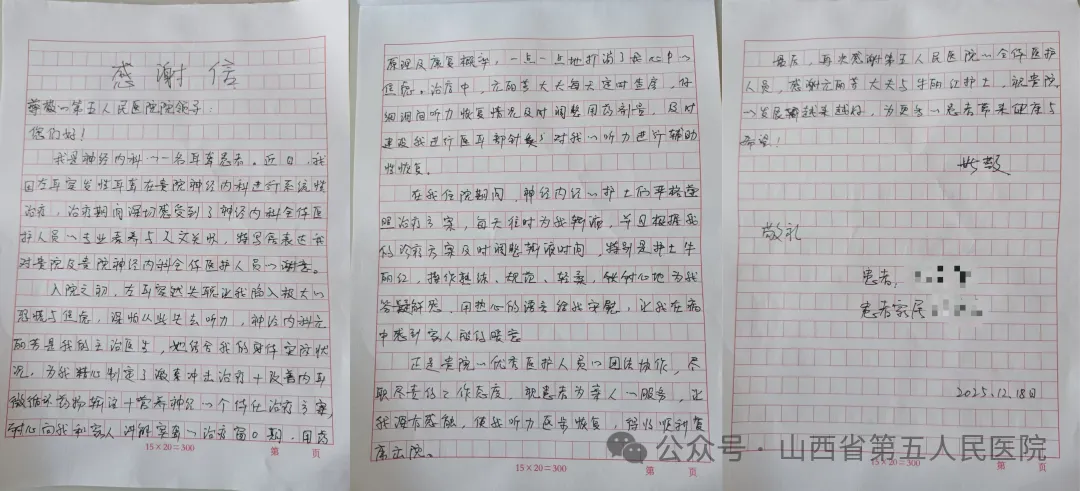 感谢信
尊敬的第五人民医院院领子：
您们好！
我是神经内科的一名耳聋患者。近日，我
因左耳突发性耳聋在贵院神经内科进行系统性
治疗，治疗期间深切感受到了神经内科全体医
护人员的专业素养与人文关怀，特写信表达我
对贵院及贵院神经内科全体医护人员的谢意。
入院之初，左耳突然失聪让我陷入极大的
恐慌与焦虑，深怕从此失去听力，神经内科亢
丽芳是我的主治医生，她结合我的身体实际状
况，为我精心制定了激素冲击治疗+改善内耳
微循环药物输注+营养神经的个体化治疗方案，
耐心向我和家人讲解突聋的治疗窗口期、用药
15×20=300
第 页
原理及康复概率，一点一点地打消了我心中的
焦虑。治疗中，亢丽芳大夫每天定时查房，仔
细询问听力恢复情况及时调整用药剂量，及时
建议我进行医耳部针灸对我的听力进行辅助
性恢复。
在我住院期间，神经内经的护士们严格遵
照治疗方案，每天准时为我输液，并且根据我
的治疗方案及时调整输液时间，特别是护士牛
丽红，操作熟练、规范、轻柔，能耐心地为我
答疑解惑，用热心的语言给我安慰，让我在病
中感到家人般的暖意
正是贵院的优秀医护人员的团结协作，尽
职尽责的工作态度，视患者为亲人的服务，让
我深有感触，使我听力医步恢复，得以顺利复
康出院。
15×20=300
第 页
最后，再次感谢第五人民医院的全体医护
人员，感谢亢丽芳大夫与牛丽红护士，祝贵院
的发展越来越好，为更多的患者带来健康与
希望！
此致
敬礼
患者：
患者家属
2025.12.18日
第 页
公众号·山西省第五人民医院